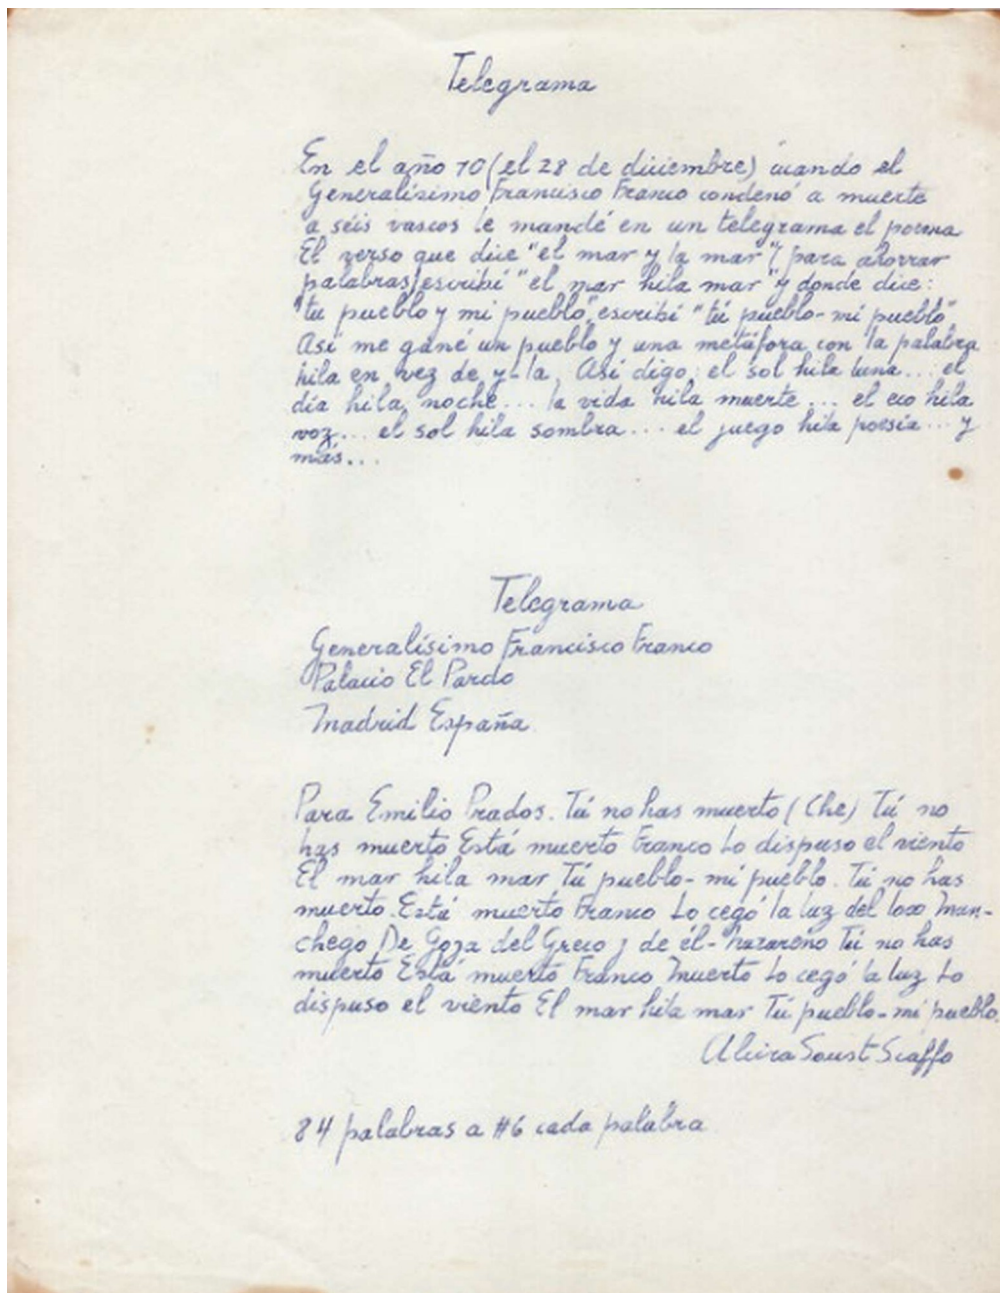 Telegrama
En el año 70 (el 28 de diciembre) cuando el
Generalísimo Francisco Franco condenó a muerte
a séis vascos le mandé en un telegrama el poema
El verso que dice "el mar y la mar" (para ahorrar
palabras) escribí "el mar hila mar" y donde dice:
"tu pueblo y mi pueblo" escribí "tú pueblo-mi pueblo"
Así me gané un pueblo y una metáfora con la palabra
hila en vez de y-la. Así digo: el sol hila luna... el
día hila noche... la vida hila muerte... el eco hila
voz... el sol hila sombra... el juego hila poesía... y
más...
Telegrama
Generalísimo Francisco Franco
Palacio El Pardo
Madrid España
Para Emilio Prados. Tú no has muerto (Che) Tú no
has muerto Está muerto Franco Lo dispuso el viento
El mar hila mar Tú pueblo-mi pueblo. Tú no has
muerto. Está muerto Franco Lo cegó la luz del loco Man-
chego De Goya del Greco y de él-nazareno Tú no has
muerto Está muerto Franco Muerto Lo cegó la luz Lo
dispuso el viento El mar hila mar Tú pueblo-mi pueblo.
Alcira Soust Scaffo
84 palabras a #6 cada palabra